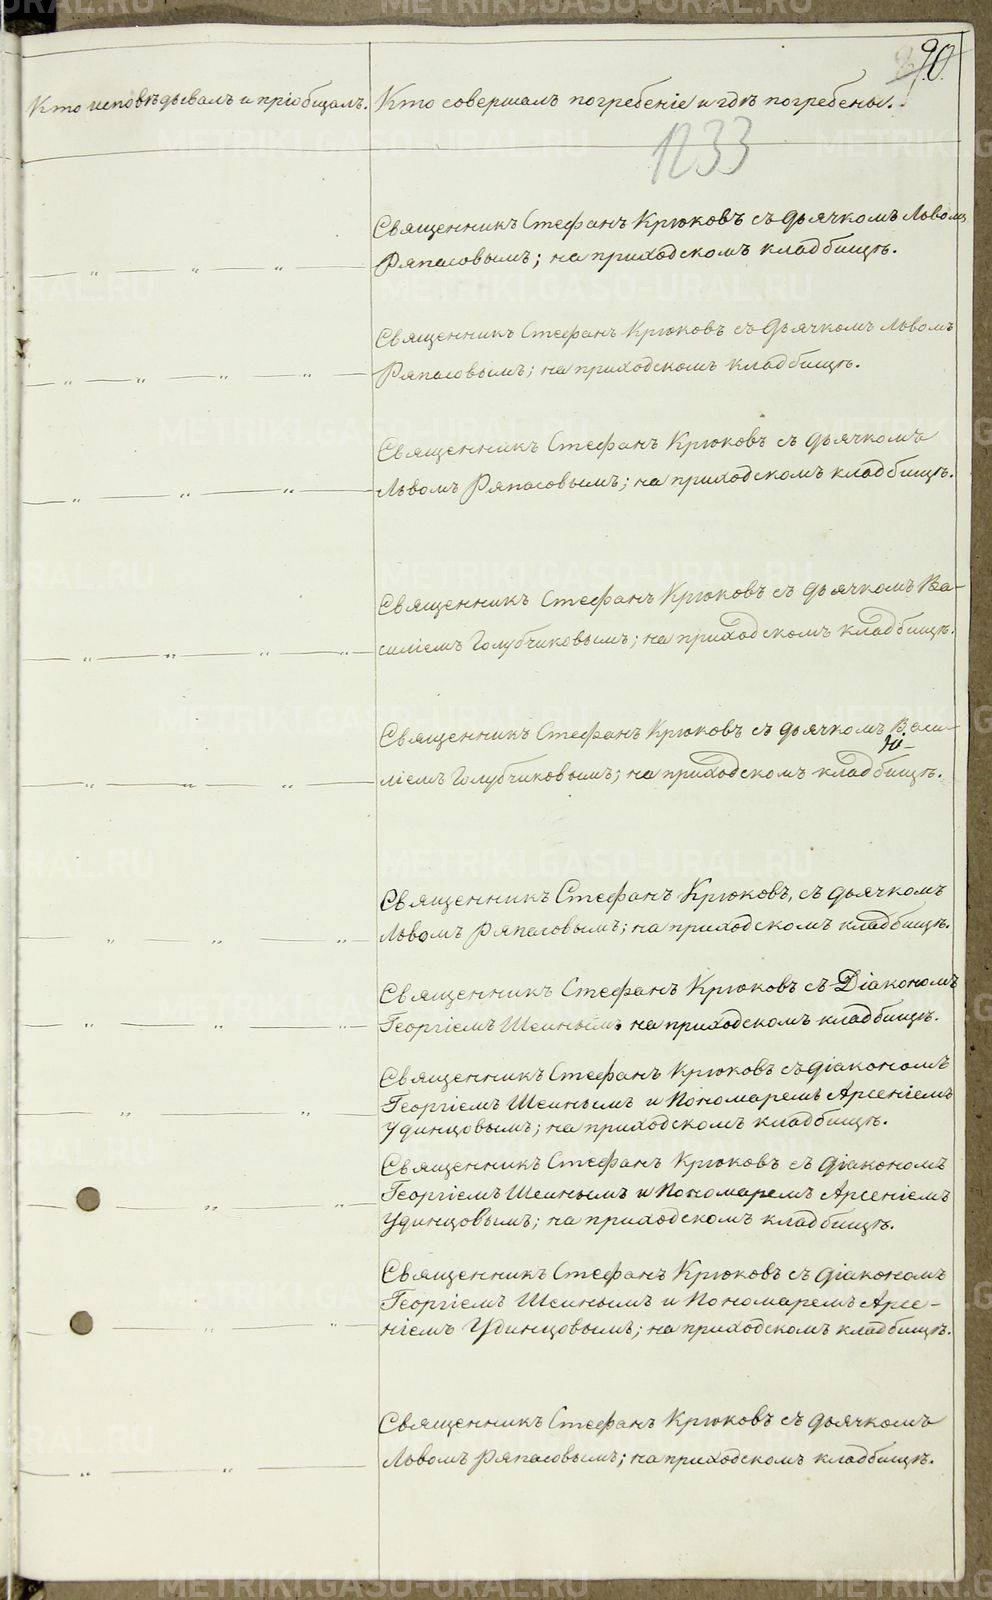 90.
Кто исповѣдывалъ и пріобщалъ.
Кто совершалъ погребеніе и гдѣ погребены.
1233
Священникъ Стефанъ Крюковъ съ дьячкомъ Львомъ
Ряпасовымъ; на приходскомъ кладбищѣ.
Священникъ Стефанъ Крюковъ съ дьячкомъ Львомъ
Ряпасовымъ; на приходскомъ кладбищѣ.
Священникъ Стефанъ Крюковъ съ дьячкомъ
Львомъ Ряпасовымъ; на приходскомъ кладбищѣ.
Священникъ Стефанъ Крюковъ съ дьячкомъ Ва-
силіемъ Голубчиковымъ; на приходскомъ кладбищѣ.
Священникъ Стефанъ Крюковъ съ дьячкомъ Васи-
ліемъ Голубчиковымъ; на приходскомъ кладбищѣ.
Священникъ Стефанъ Крюковъ, съ дьячкомъ
Львомъ Ряпасовымъ; на приходскомъ кладбищѣ.
Священникъ Стефанъ Крюковъ съ Діакономъ
Георгіемъ Шеинымъ на приходскомъ кладбищѣ.
Священникъ Стефанъ Крюковъ съ діакономъ
Георгіемъ Шеинымъ и Пономаремъ Арсеніемъ
Удинцовымъ; на приходскомъ кладбищѣ.
Священникъ Стефанъ Крюковъ съ діакономъ
Георгіемъ Шеинымъ и Пономаремъ Арсеніемъ
Удинцовымъ; на приходскомъ кладбищѣ.
Священникъ Стефанъ Крюковъ съ діакономъ
Георгіемъ Шеинымъ и Пономаремъ Арсе-
ніемъ Удинцовымъ; на приходскомъ кладбищѣ.
Священникъ Стефанъ Крюковъ съ дьячкомъ
Львомъ Ряпасовымъ; на приходскомъ кладбищѣ.
METRIKI.GASO-URAL.RU